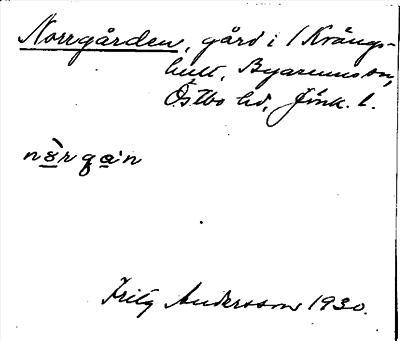 Norrgården, gård i 1 Krängs-
hult, Byarums sn,
Östbo hd, Jönk. l.
nòrgɑ·n
Fritz Andersson 1930.